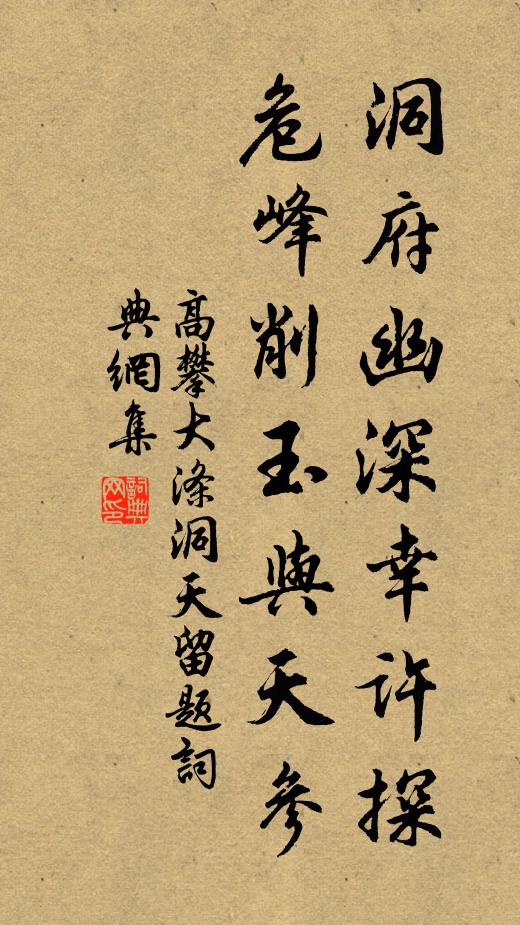 洞府幽深幸許探
危峰削玉與天參
高攀大滌洞天留題詞
典網集
詞典网印